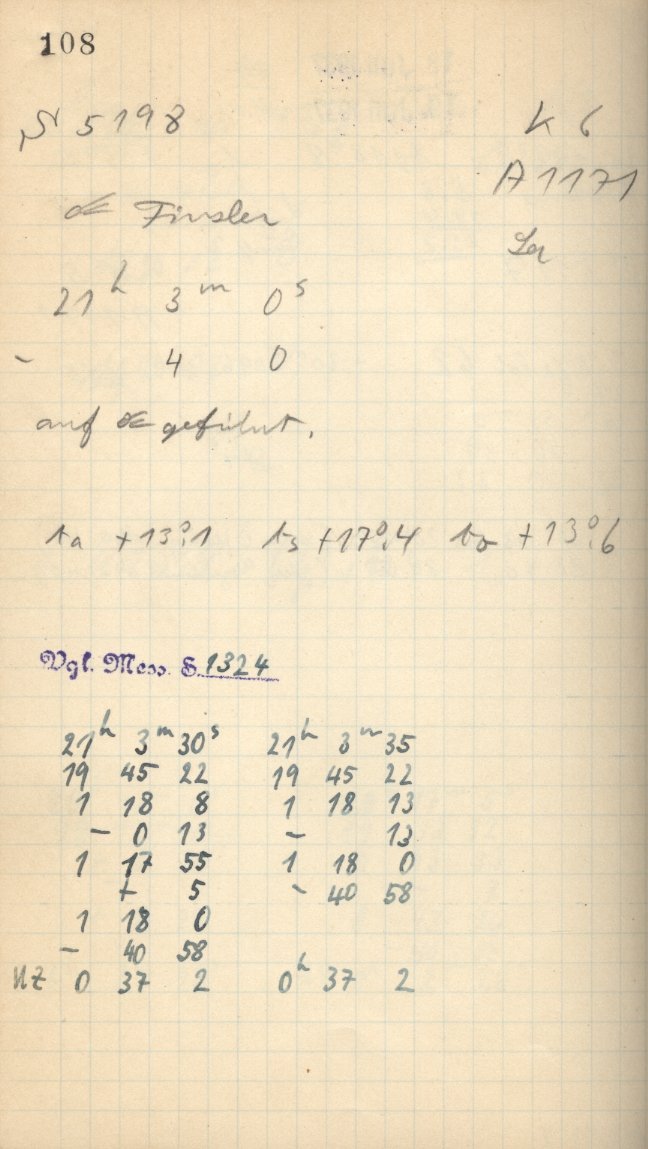 108
S 5198 K 6
A 1171
☄ Finsler La
21ʰ 3ᵐ 0ˢ
- 4 0
auf ☄ geführt.
ta +13°.1 ts +17°.4 to +13°.6
Vgl. Mess. S. 1324
21ʰ 3ᵐ 30ˢ 21ʰ 3ᵐ 35
19 45 22 19 45 22
1 18 8 1 18 13
- 0 13 - 13
1 17 55 1 18 0
+ 5 - 40 58
1 18 0
- 40 58
MZ 0 37 2 0ʰ 37 2